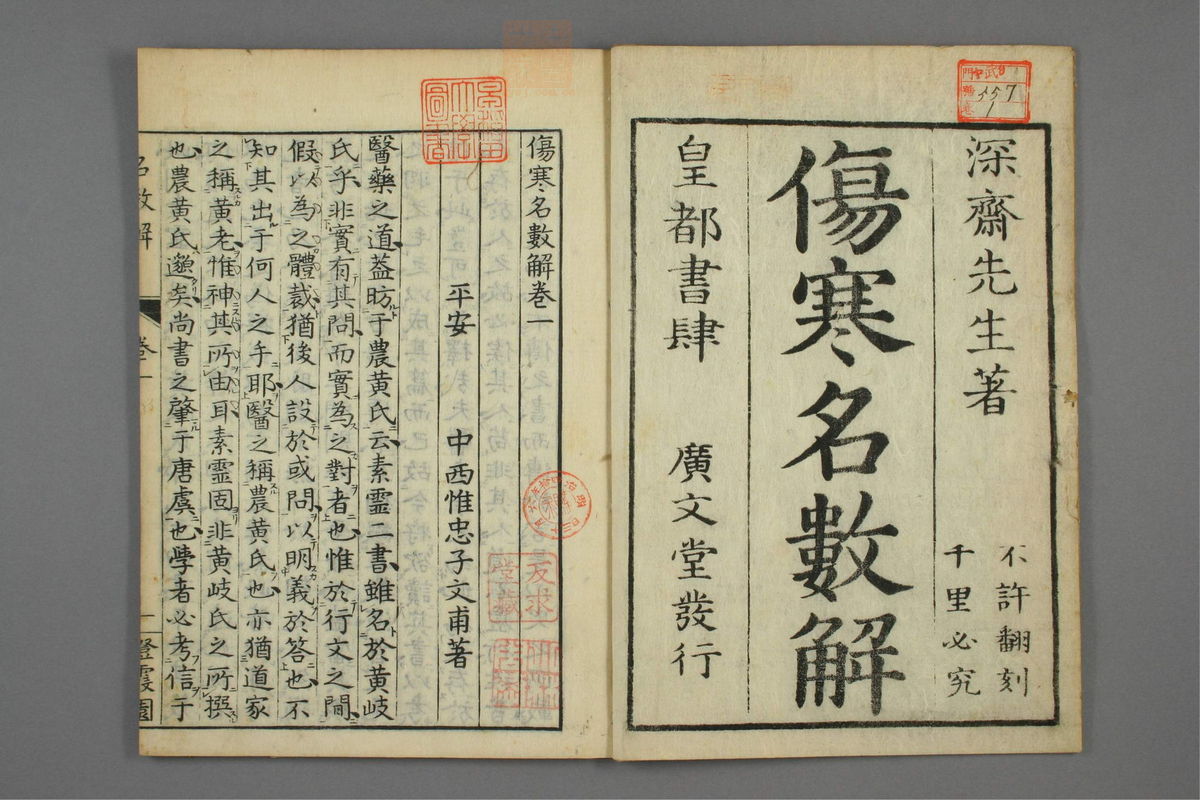 深齋先生著
不許翻刻
千里必究
傷寒名數解
皇都書肆 廣文堂發行
傷寒名數解卷一
平安 中西惟忠子文甫著
醫藥之道葢昉于農黃氏云素靈二書雖名於黃岐
氏乎非實有其問而實為之對者也惟於行文之間
假以為之體裁猶後人設於或問以明義於答也不
知其出于何人之手耶醫之稱農黃氏也亦猶道家
之稱黃老惟神其所由耳素靈固非黃岐氏之所撰
也農黃氏邈矣尚書之肇于唐虞也學者必考信于
名數解 卷一 一
557
1